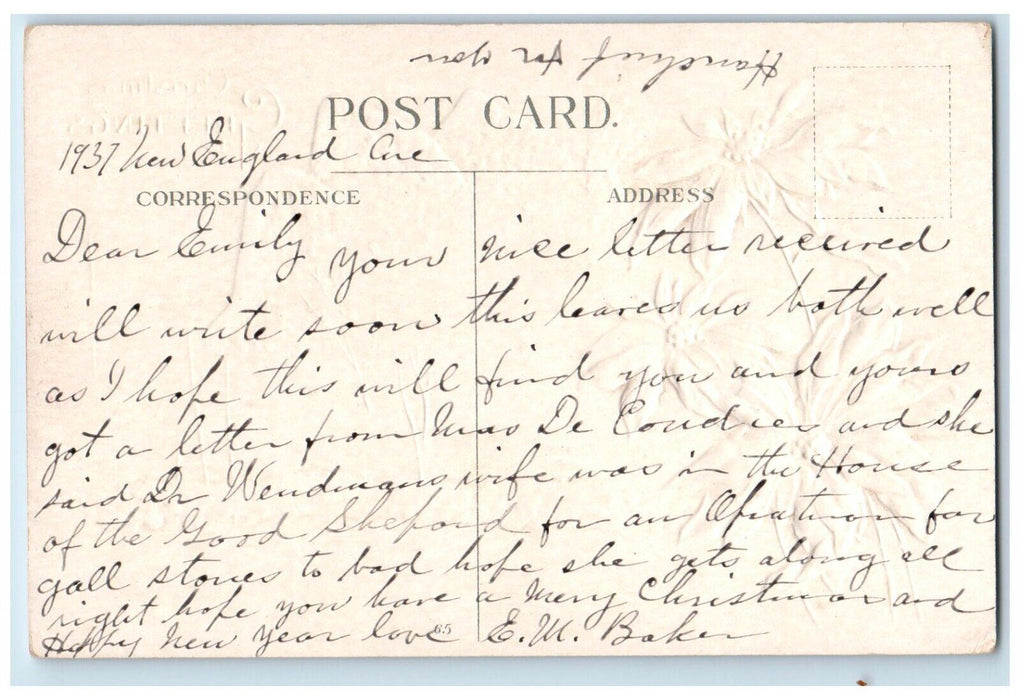 Hanchief for you
POST CARD.
1937 New England Ave
CORRESPONDENCE
ADDRESS
Dear Emily your nice letter received
will write soon this leaves us both well
as I hope this will find you and yours
got a letter from Mrs De Coudres and she
said Dr Wendmans wife was in the House
of the Good Sheperd for an Opration for
gall stones to bad hope she gets along all
right hope you have a Merry Christmas and
Happy New Year love E. M. Baker
65